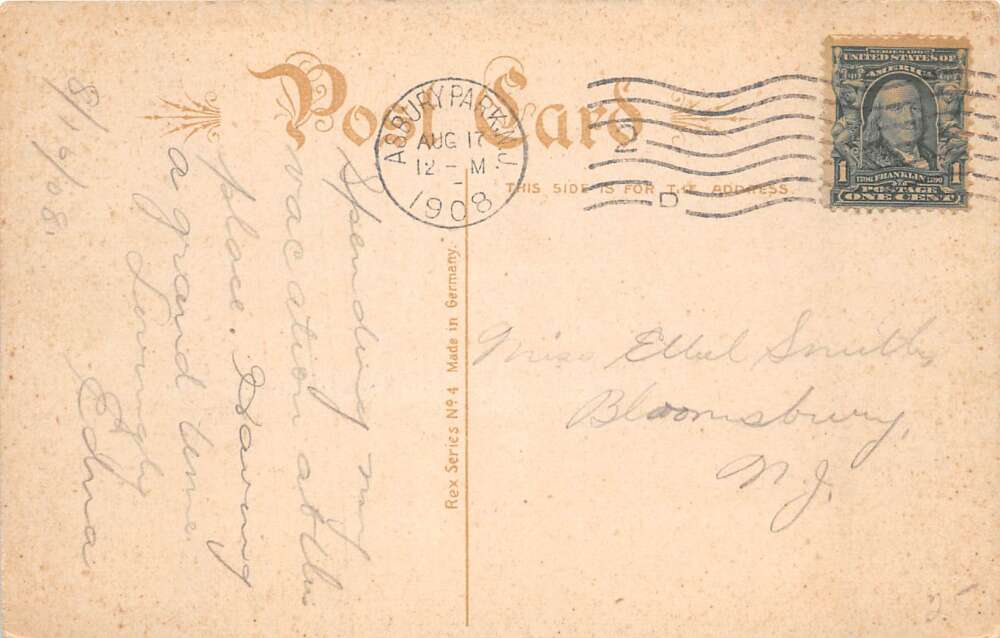 Post Card
THIS SIDE IS FOR THE ADDRESS.
ASBURY PARK, N.J.
AUG 17
12 - M
1908
D
SERIES 1902
UNITED STATES OF
AMERICA
1706 FRANKLIN 1790
1 POSTAGE 1
ONE CENT
8/16/08
Spending my
vacation at this
place. Having
a grand time.
Lovingly
Edna
Rex Series Nº 4 Made in Germany.
Miss Ethel Smith,
Bloomsbury,
N.J.